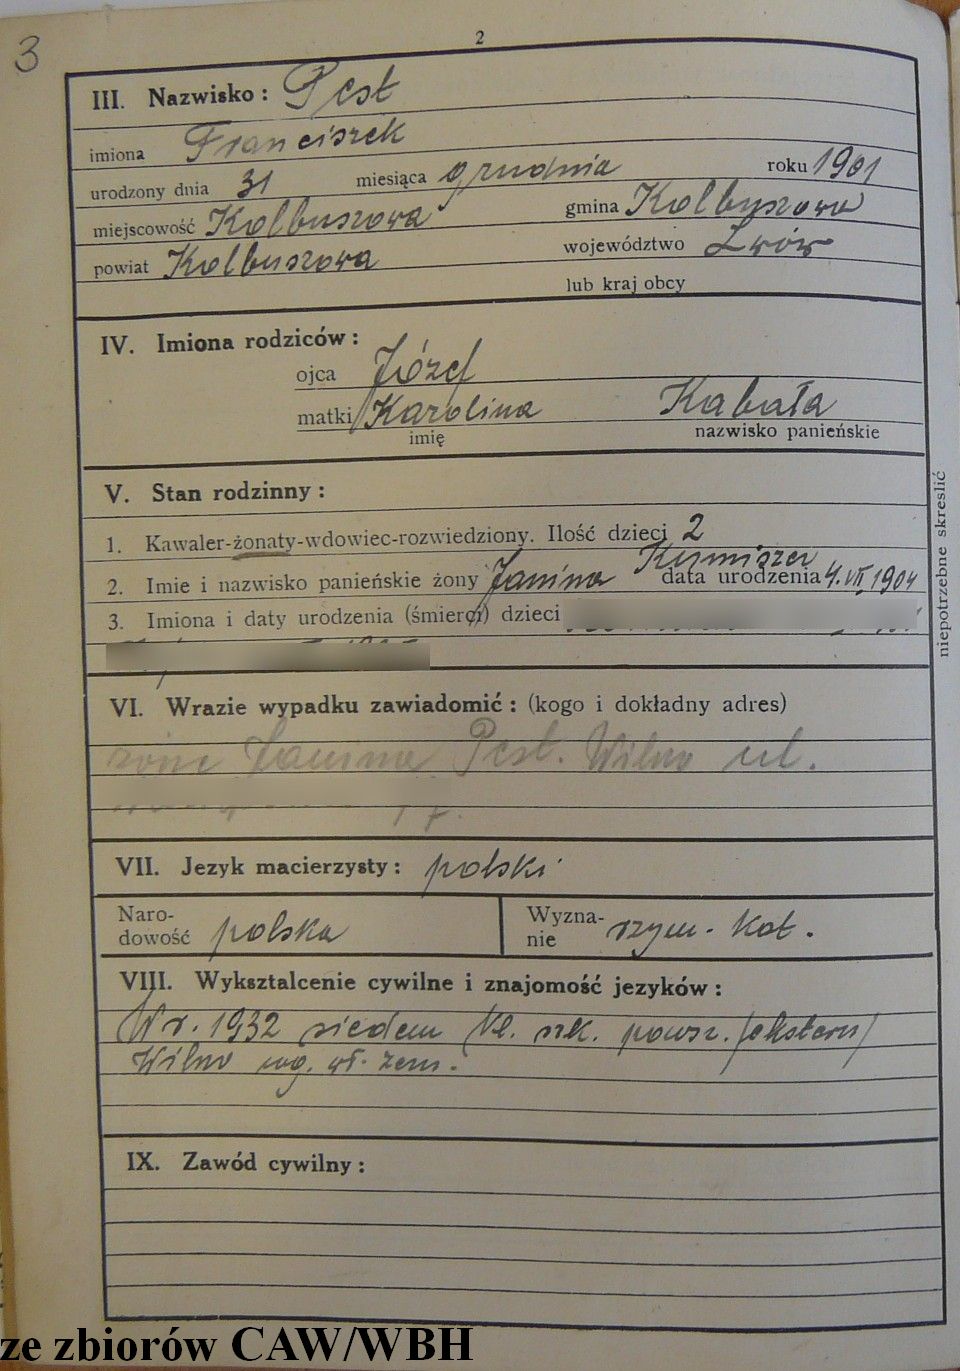 3
2
III. Nazwisko: Pest
imiona Franciszek
urodzony dnia 31 miesiąca grudnia roku 1901
miejscowość Kolbuszowa gmina Kolbuszowa
powiat Kolbuszowa województwo Lwów
lub kraj obcy
IV. Imiona rodziców:
ojca Józef
matki Karolina Kabała
imię nazwisko panieńskie
V. Stan rodzinny:
1. Kawaler-żonaty-wdowiec-rozwiedziony. Ilość dzieci 2
2. Imie i nazwisko panieńskie żony Janina data urodzenia 4.VII.1904
3. Imiona i daty urodzenia (śmierci) dzieci
niepotrzebne skreslić
VI. Wrazie wypadku zawiadomić: (kogo i dokładny adres)
żonę Janina Pest. Wilno ul.
VII. Jezyk macierzysty: polski
Naro-
dowość polska
Wyzna-
nie rzym. kat.
VIII. Wyksztalcenie cywilne i znajomość jezyków:
W r. 1932 siedem kl. szk. powsz. /ekstern/
Wilno wg. wł. zezn.
IX. Zawód cywilny:
ze zbiorów CAW/WBH